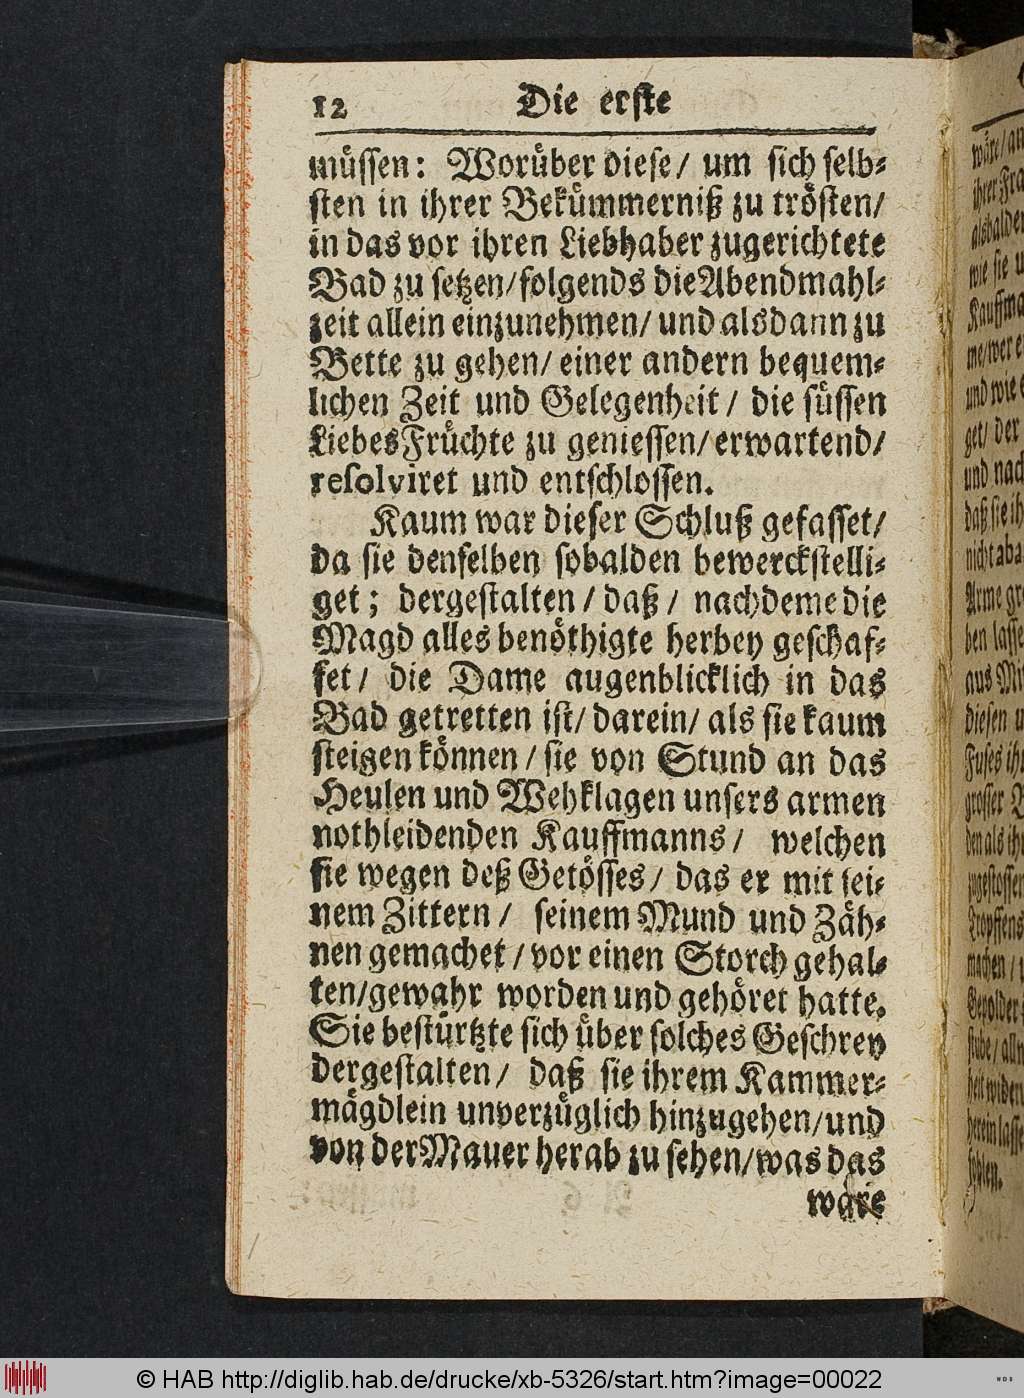 12 Die erste
müssen: Worüber diese/ um sich selb-
sten in ihrer Bekümmerniß zu trösten/
in das vor ihren Liebhaber zugerichtete
Bad zu setzen/folgends die Abendmahl-
zeit allein einzunehmen/ und alsdann zu
Bette zu gehen/ einer andern bequem-
lichen Zeit und Gelegenheit / die süssen
LiebesFrüchte zu geniessen/ erwartend/
resolviret und entschlossen.
Kaum war dieser Schluß gefasset/
da sie denselben sobalden bewerckstelli-
get; dergestalten / daß / nachdeme die
Magd alles benöthigte herbey geschaf-
fet / die Dame augenblicklich in das
Bad getretten ist/ darein/ als sie kaum
steigen können / sie von Stund an das
Heulen und Wehklagen unsers armen
nothleidenden Kauffmanns / welchen
sie wegen deß Getösses / das er mit sei-
nem Zittern / seinem Mund und Zäh-
nen gemachet / vor einen Storch gehal-
ten/gewahr worden und gehöret hatte.
Sie bestürtzte sich über solches Geschrey
dergestalten/ daß sie ihrem Kammer-
mägdlein unverzüglich hinzugehen/und
von der Mauer herab zu sehen/was das
wäre
wäre/
ihrer
alsbalden
wie sie
und wie
get/ der
und nach
daß sie
aus
diesen
grosser
den als
machen /
© HAB http://diglib.hab.de/drucke/xb-5326/start.htm?image=00022